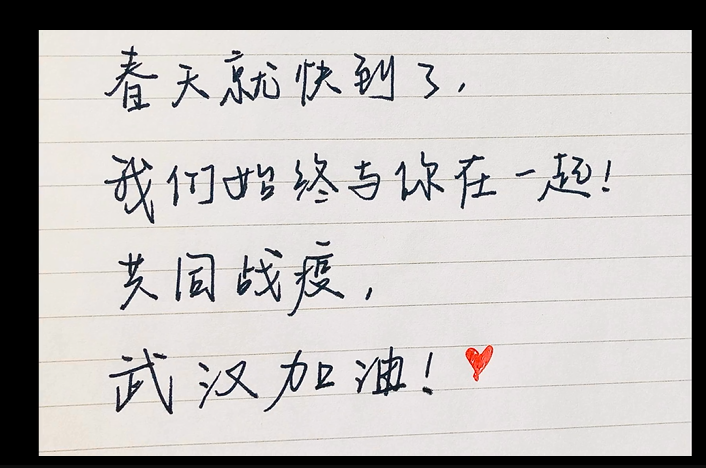 春天就快到了，
我们始终与你在一起！
共同战疫，
武汉加油！